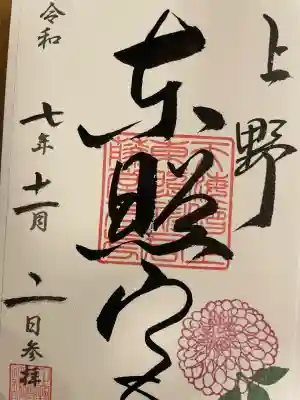 上野
東照宮
令和七年十一月二日参拝